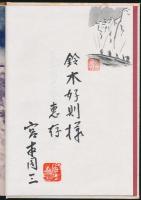 鈴木好則様
恵存
宮本
三